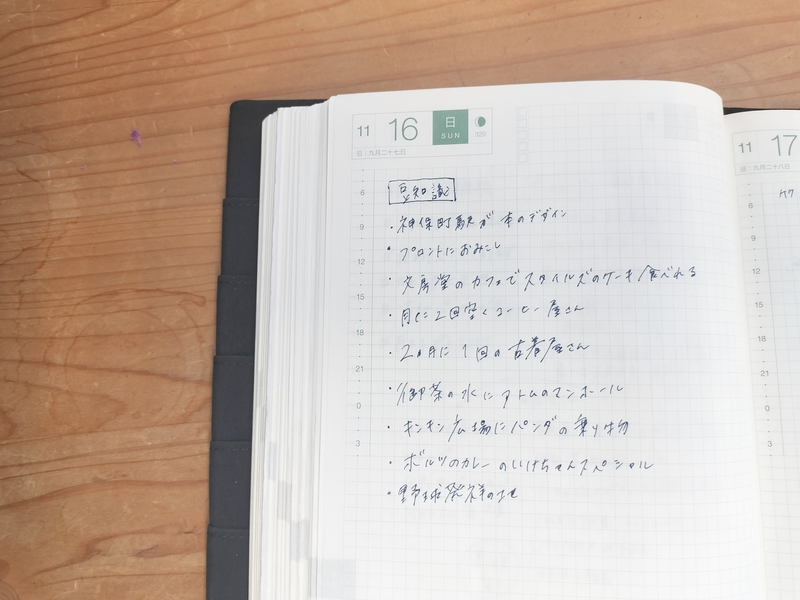 11 16 日 SUN
旧:九月二十七日
豆知識
・神保町駅が本のデザイン
・プロントにおみこし
・文房堂のカフェでスタイルズのケーキ食べれる
・月に2回空くコーヒー屋さん
・2ヵ月に1回の古着屋さん
・御茶の水にアトムのマンホール
・キンキン広場にパンダの乗り物
・ボルツのカレーのいけちゃんスペシャル
・野球発祥の地
6
9
12
15
18
21
0
3
11 17
旧:九月二十八日
6
9
12
15
18
21
0
3